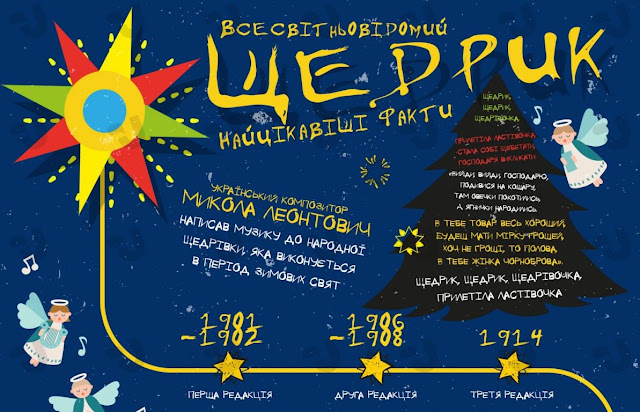 ВСЕСВІТНЬОВІДОМИЙ
ЩЕДРИК
НАЙЦІКАВІШІ ФАКТИ
УКРАЇНСЬКИЙ КОМПОЗИТОР
МИКОЛА ЛЕОНТОВИЧ
НАПИСАВ МУЗИКУ ДО НАРОДНОЇ
ЩЕДРІВКИ, ЯКА ВИКОНУЄТЬСЯ
В ПЕРІОД ЗИМОВИХ СВЯТ
ЩЕДРИК,
ЩЕДРИК,
ЩЕДРІВОЧКА,
ПРИЛЕТІЛА ЛАСТІВОЧКА
СТАЛА СОБІ ЩЕБЕТАТИ
ГОСПОДАРЯ ВИКЛИКАТИ
«ВИЙДИ, ВИЙДИ, ГОСПОДАРЮ,
ПОДИВИСЯ НА КОШАРУ,
ТАМ ОВЕЧКИ ПОКОТИЛИСЬ
А ЯГНИЧКИ НАРОДИЛИСЬ
В ТЕБЕ ТОВАР ВЕСЬ ХОРОШИЙ,
БУДЕШ МАТИ МІРКУ ГРОШЕЙ,
ХОЧ НЕ ГРОШІ, ТО ПОЛОВА,
В ТЕБЕ ЖІНКА ЧОРНОБРОВА».
ЩЕДРИК, ЩЕДРИК, ЩЕДРІВОЧКА,
ПРИЛЕТІЛА ЛАСТІВОЧКА
1901
-1902
ПЕРША РЕДАКЦІЯ
1906
-1908
ДРУГА РЕДАКЦІЯ
1914
ТРЕТЯ РЕДАКЦІЯ